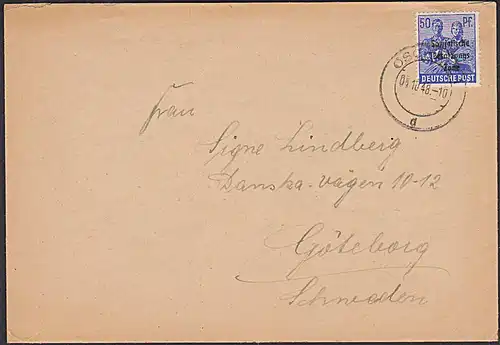 50 PF.
Sowjetische
Besatzungs
Zone
DEUTSCHE POST
04.10.48.-10
d
Frau
Signe Lindberg
Danska-vägen 10-12
Göteborg
Schweden